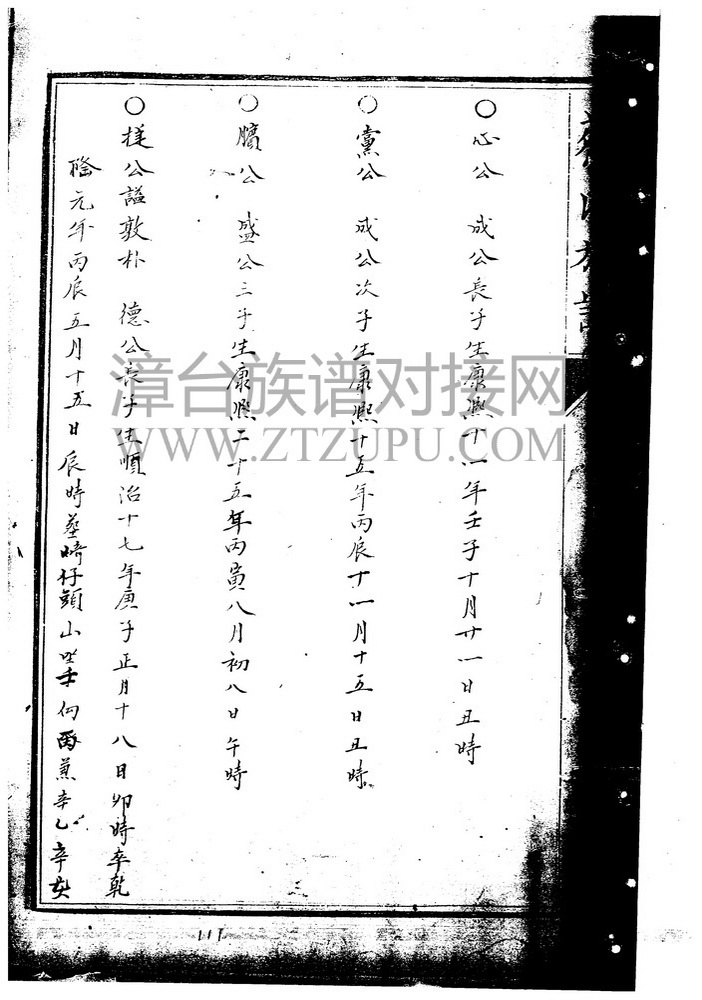 ○心公 成公長子生康熙十一年壬子十月廿一日丑時
○黨公 成公次子生康熙十五年丙辰十一月十五日丑時
○騰公 盛公三子生康熙二十五年丙寅八月初八日午時
○公謚敦朴 德公長子生順治十七年庚子正月十八日卯時卒乾
隆元年丙辰五月十五日辰時墓崎仔頭山坐壬向丙兼辛
漳台族谱对接网
WWW.ZTZUPU.COM